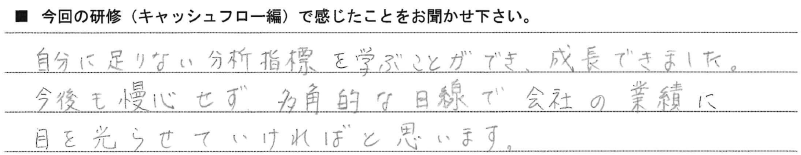 ■ 今回の研修（キャッシュフロー編）で感じたことをお聞かせ下さい。
自分に足りない分析指標を学ぶことができ、成長できました。
今後も慢心せず多角的な目線で会社の業績に
目を光らせていければと思います。